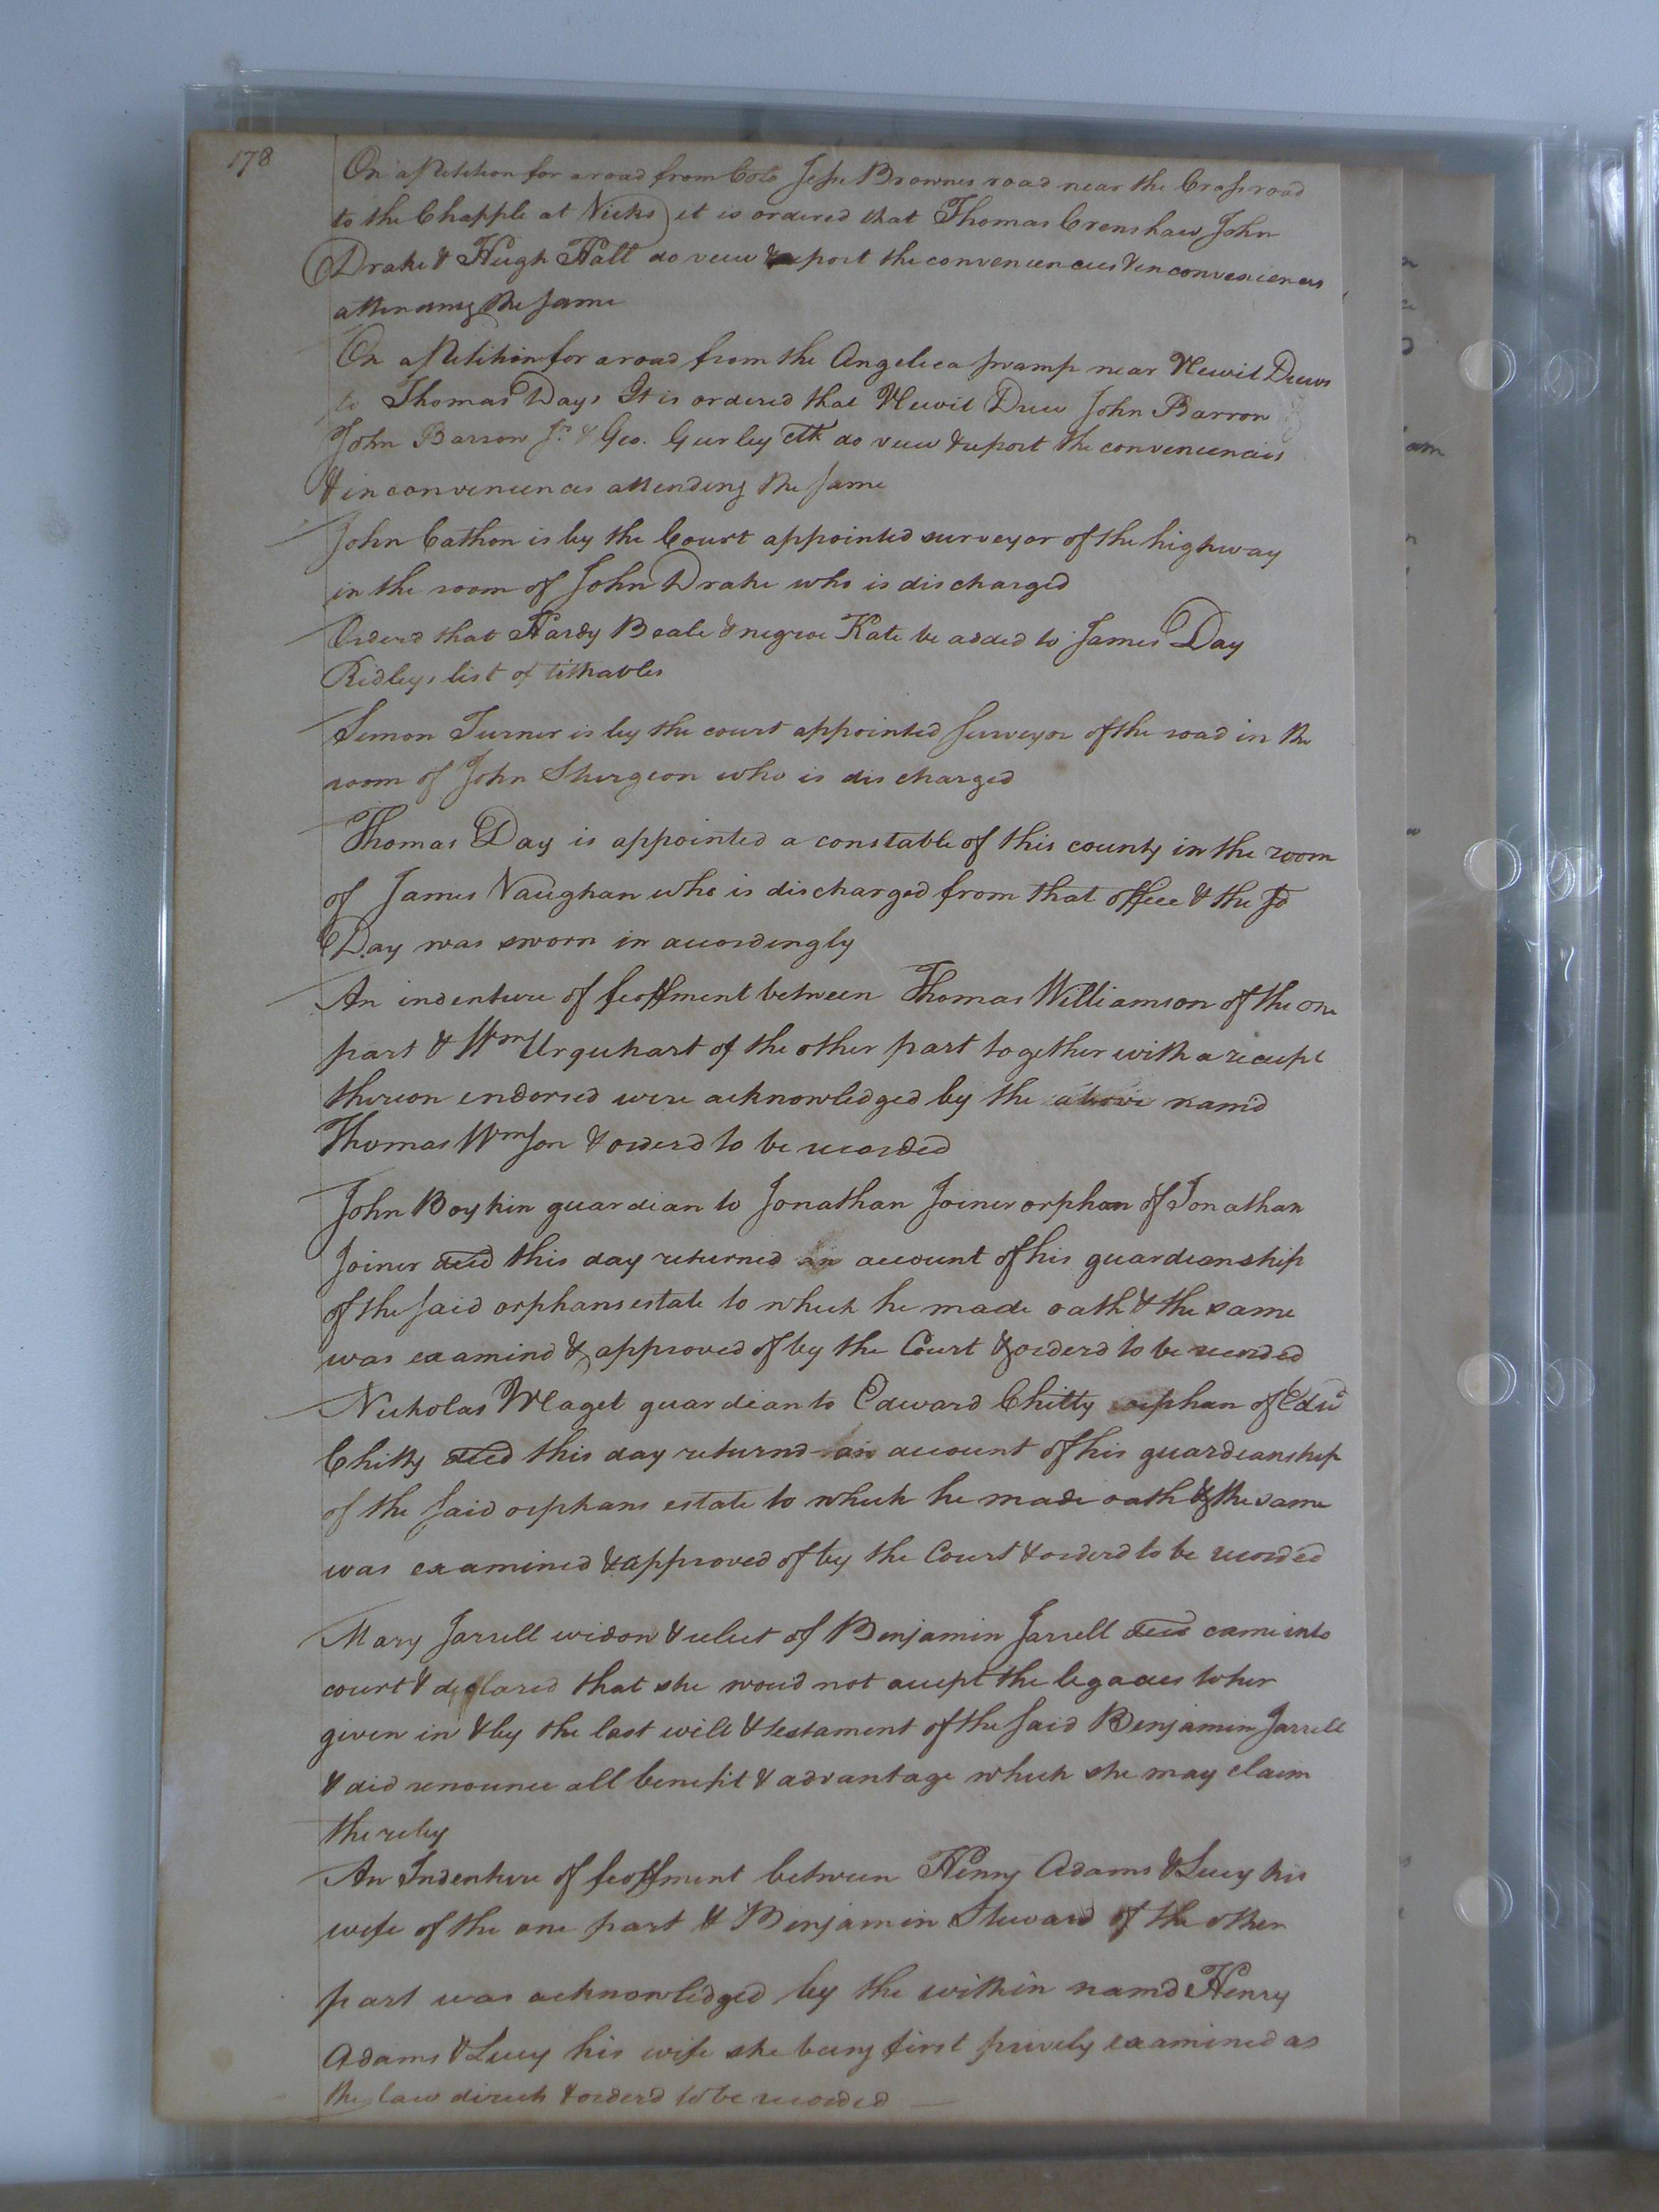 178
On a Petition for a road from Colo Jesse Brownes road near the Crossroad
to the Chapple at Vicks it is ordered that Thomas Crenshaw John
Drake & Hugh Hall do veiw & report the conveniencies & inconveniencies
attending the same
On a Petition for a road from the Angelica swamp near Newit Drews
to Thomas Days It is ordered that Newit Drew John Barron
John Barron Jr. & Geo. Gurley Clk do veiw & report the conveniencies
& inconveniences attending the same
John Cathon is by the Court appointed surveyor of the highway
in the room of John Drake who is discharged
Orderd that Hardy Beale & negroe Kate be added to James Day
Ridleys list of tithables
Simon Turner is by the court appointed surveyor of the road in the
room of John Sturgeon who is discharged
Thomas Day is appointed a constable of this county in the room
of James Vaughan who is discharged from that office & the sd
Day was sworn in accordingly
An indenture of feoffment between Thomas Williamson of the one
part & Wm Urquhart of the other part together with a receipt
thereon endorsed were acknowledged by the above nam'd
Thomas Wmson & orderd to be recorded
John Boykin guardian to Jonathan Joiner orphan of Jonathan
Joiner decd this day returned an account of his guardianship
of the said orphans estate to which he made oath & the same
was examind & approved of by the Court & orderd to be recorded
Nicholas Maget guardian to Edward Chitty orphan of Edwd
Chitty decd this day returnd an account of his guardeanship
of the said orphans estate to which he made oath & the same
was examined & approved of by the Court & orderd to be recorded
Mary Jarrell widow & relict of Benjamin Jarrell decd came into
court & declared that she woud not accept the legacies to her
given in & by the last will & testament of the said Benjamin Jarrell
& did renounce all benefit & advantage which she may claim
thereby
An Indenture of feoffment between Henry Adams & Lucy his
wife of the one part & Benjamin Steward of the other
part was acknowledged by the within namd Henry
Adams & Lucy his wife she being first privily examined as
the law directs & orderd to be recorded